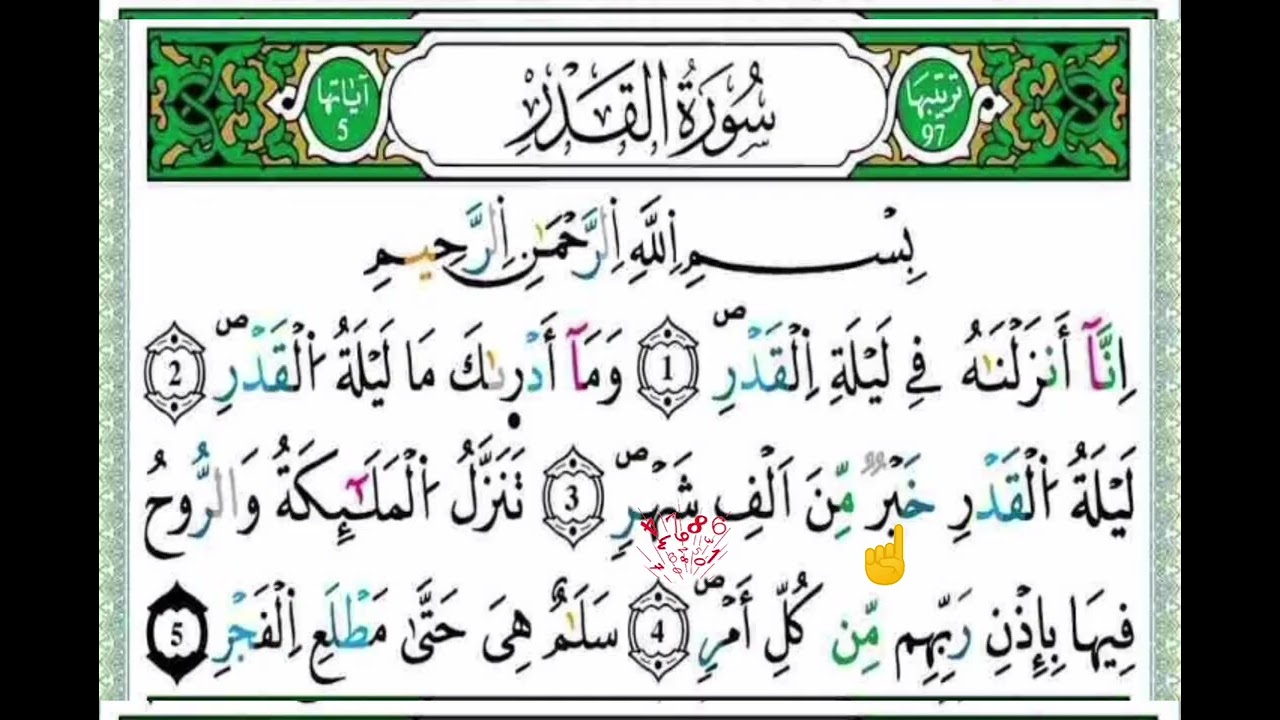 ترتيبها 97 سُورَةُ القَدْرِ آياتها 5
بِسْمِ اِللَّهِ اِلرَّحْمَٰنِ اِلرَّحِيمِ
اِنَّآ أَنزَلْنَٰهُ فِے لَيْلَةِ اِلْقَدْرِ ص 1 وَمَآ أَدْرٜىٰكَ مَا لَيْلَةُ اُلْقَدْرِ ص 2
لَيْلَةُ اُلْقَدْرِ خَيْرٌ مِّنَ اَلْفِ شَهْرٍ ص 3 تَنَزَّلُ اُلْمَلَٰٓئِكَةُ وَالرُّوحُ
فِيهَا بِإِذْنِ رَبِّهِم مِّن كُلِّ أَمْرٍ ص 4 سَلَٰمٌ هِىَ حَتَّىٰ مَطْلَعِ اِلْفَجْرِ 5